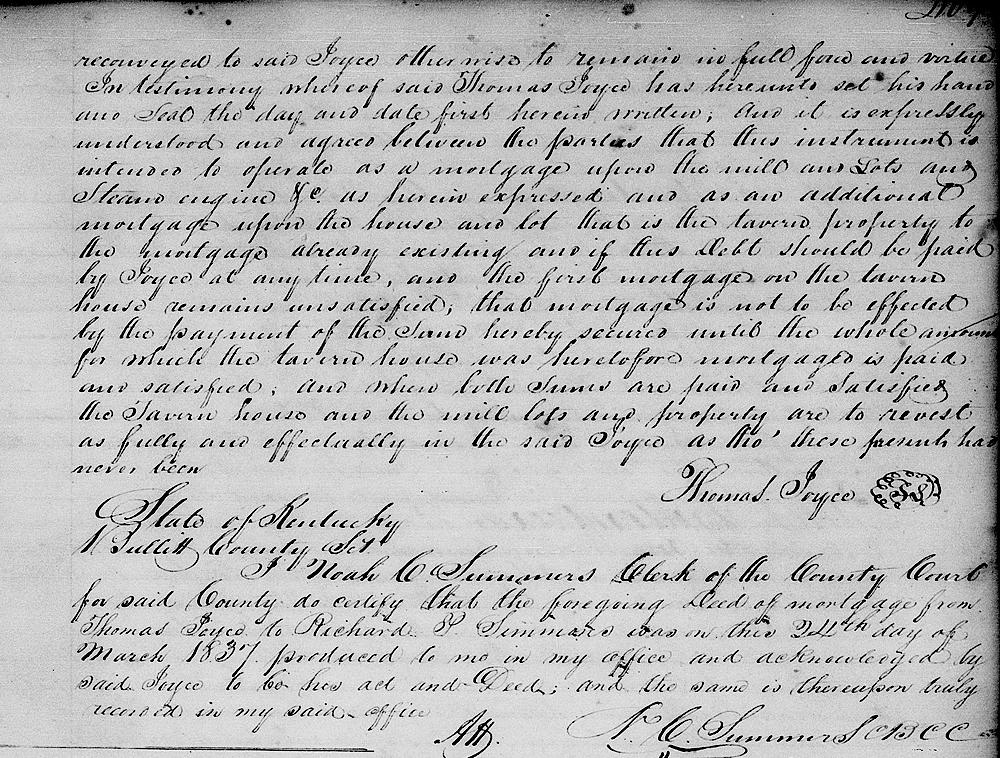 reconveyed to said Joyce otherwise to remain in full force and virtue
In testimony whereof said Thomas Joyce has hereunto set his hand
and Seal the day and date first herein written; and it is expressly
understood and agreed between the parties that this instrument is
intended to operate as a mortgage upon the mill and Lots and
Steam engine &c. as herein expressed and as an additional
mortgage upon the house and lot that is the tavern property to
the mortgage already existing and if this Debt should be paid
by Joyce at any time, and the first mortgage on the tavern
house remains unsatisfied; that mortgage is not to be effected
by the payment of the Sum hereby secured until the whole amount
for which the tavern house was heretofore mortgaged is paid
and satisfied; and when both Sums are paid and Satisfied
the Tavern house and the mill lots and property are to revest
as fully and effectually in the said Joyce as tho' these presents had
never been
Thomas. Joyce LS
State of Kentucky
Bullitt County Sct.
I Noah C. Summers Clerk of the County Court
for said County do certify that the foregoing Deed of mortgage from
Thomas Joyce to Richard P. Simmons was on this 24th day of
March 1837 produced to me in my office and acknowledged by
said Joyce to be his act and Deed; and the same is thereupon truly
recorded in my said office
N. C. Summers C B C C